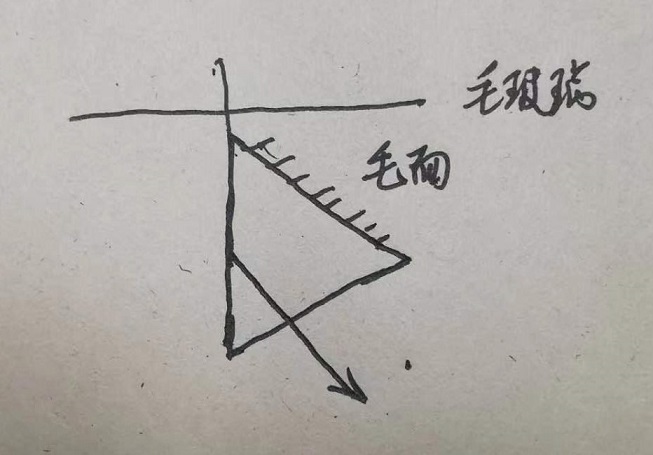 毛玻璃
毛面